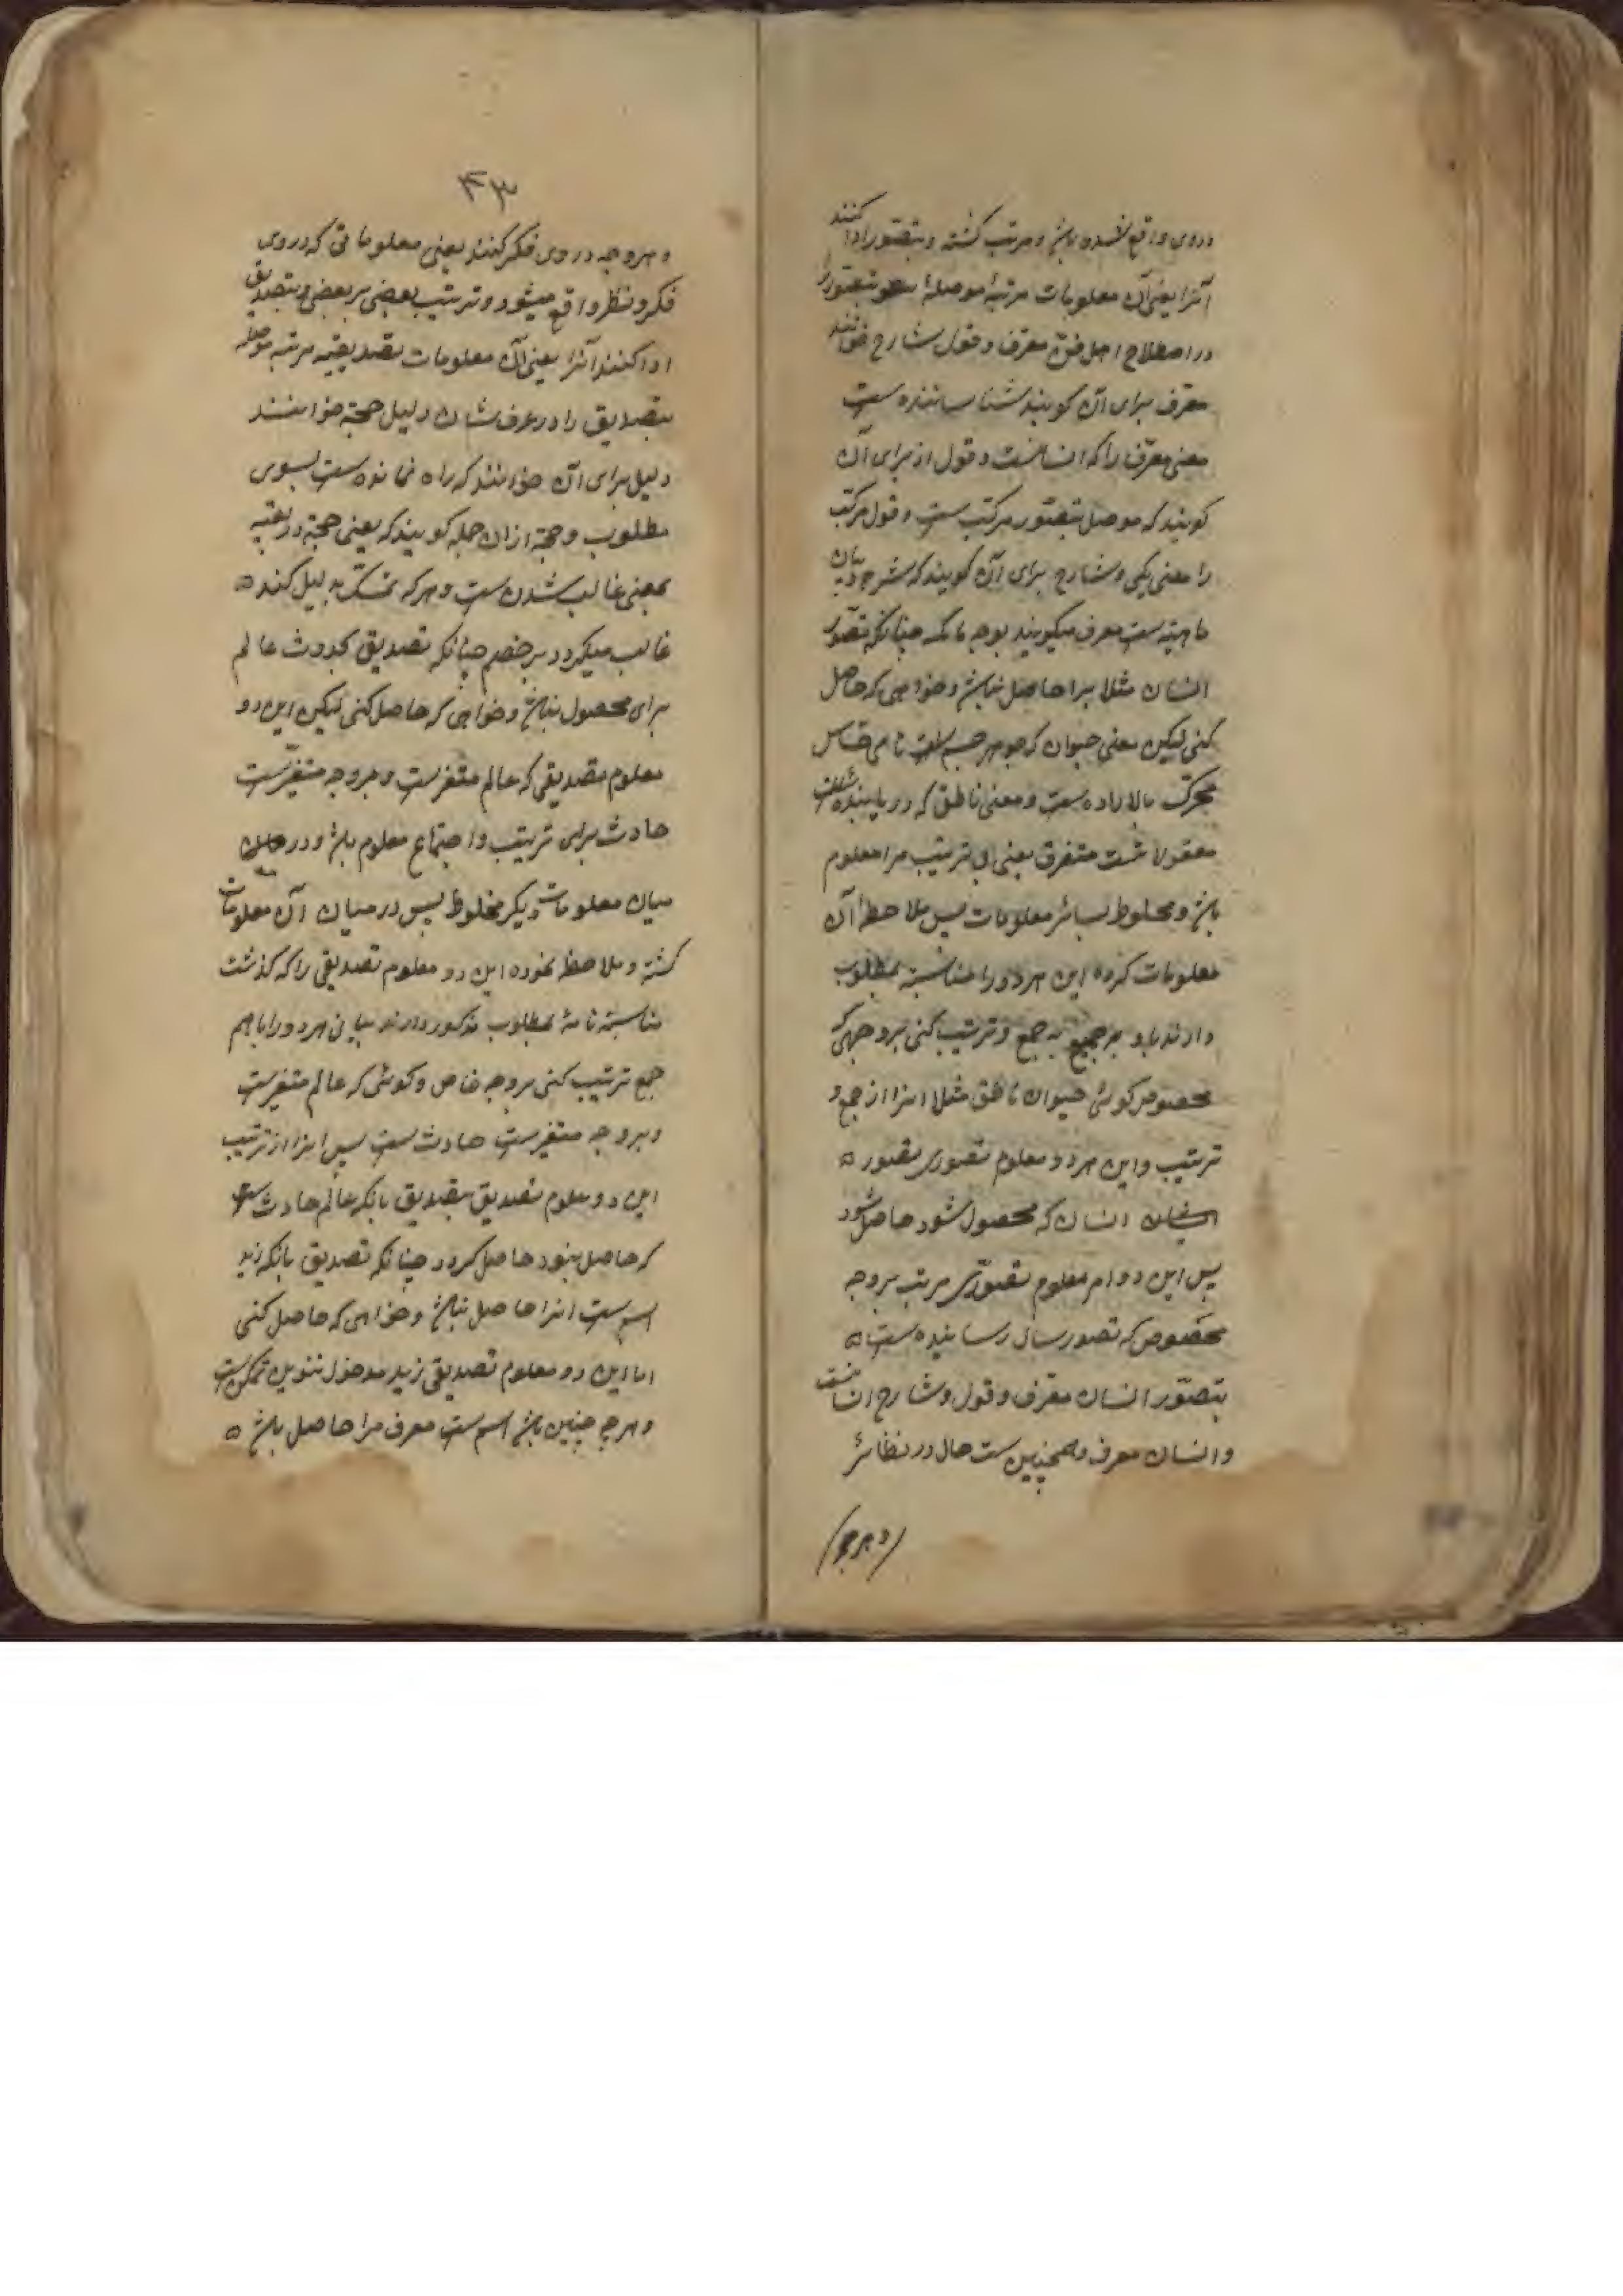 دروی واقع شده باشد و مرتب گشته و بتصور ادا کنند
آنرا یعنی آن معلومات مرتبۀ موصلۀ بتصور را
در اصطلاح اهل فن معرف و قول شارح خوانند
معرف برای آن گویند شناساننده ست
معنی معرف را که انسانست و قول از برای آن
گویند که موصل بتصور مرکب ست و قول مرکب
را معنی یکی و شارح برای آن گویند که شرح و بیان
ماهیته ست معرف میگویند بوجه مانکه چنانکه تصور
انسان مثلا مرا حاصل نباشد و خواهی که حاصل
کنی لیکن معنی حیوان که جوهر جسم است نامی حساس
متحرک بالاراده ست و معنی ناطق که دریابنده
معقولا تست متفرق یعنی بی ترتیب مرا معلوم
باشد و مخلوط بسائر معلومات پس ملاحظۀ آن
معلومات کرده این هر دو را مناسبته بمطلوب
دارند جمع و ترتیب کنی بروجهی که
مخصوص گوئی حیوان ناطق مثلا اینرا از جمع و
ترتیب و این هر دو معلوم تصوری تصور
انسان که محصول شود حاصل شود
پس این دو ام معلوم تصوری مرتب بروجه
مخصوص که تصور رساننده ست
بتصور انسان معرف و قول و شارح انسانست
و انسان معرف و همچنین ست حال در نظائر
و هرچه
۴۳
و هروجه دروی فکر کنند یعنی معلوماتی که دروی
فکر و نظر واقع میشود و ترتیب بعضی بر بعضی و بتصدیق
ادا کنند آنرا یعنی آن معلومات تصدیقیه مرتبه موصله
بتصدیق را در عرف شان دلیل حجة خوانند
دلیل برای آن خوانند که راه نماینده ست بسوی
مطلوب و حجة از ان جمله گویند که یعنی حجة در لغته
بمعنی غالب شدن ست و هر که تمسک بدلیل کند
غالب میگردد بر خصم چنانکه تصدیق بحدوث عالم
برای محصول نباشد و خواهی که حاصل کنی لیکن این دو
معلوم تصدیقی که عالم متغیرست و هروجه متغیرست
حادث برای ترتیب و اجتماع معلوم باشد و در
میان معلومات دیگر مخلوط پس در میان آن معلومات
گشته و ملاحظه نموده این دو معلوم تصدیقی را که گذشت
مناسبته تامۀ بمطلوب مذکور دارند هر دو را باهم
جمع ترتیب کنی بروجه خاص و گوئی که عالم متغیرست
و هروجه متغیرست حادث ست پس اینرا از ترتیب
این دو معلوم تصدیق بتصدیق بانکه عالم حادث ست
که حاصل نبود حاصل گردد چنانکه تصدیق بانکه زید
اسم ست انرا حاصل نباشد و خواهی که حاصل کنی
اما این دو معلوم تصدیقی زید مدخول تنوین تمکن ست
و هرچه چنین باشد اسم ست معرف مرا حاصل باشد